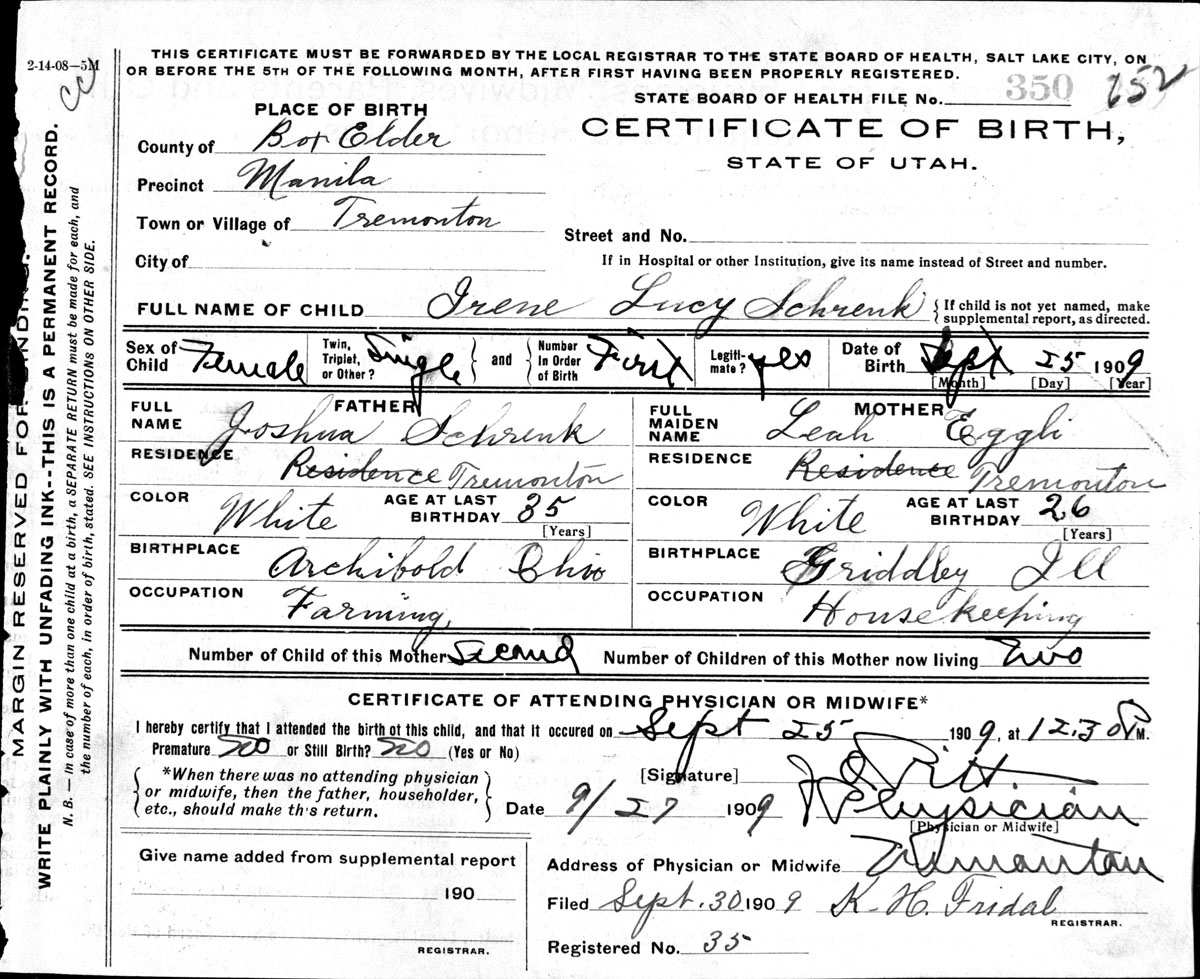 2-14-08—5M
THIS CERTIFICATE MUST BE FORWARDED BY THE LOCAL REGISTRAR TO THE STATE BOARD OF HEALTH, SALT LAKE CITY, ON
OR BEFORE THE 5TH OF THE FOLLOWING MONTH, AFTER FIRST HAVING BEEN PROPERLY REGISTERED.
STATE BOARD OF HEALTH FILE No. 350
PLACE OF BIRTH
CERTIFICATE OF BIRTH,
STATE OF UTAH.
County of Box Elder
Precinct Manila
Town or Village of Tremonton
Street and No.
City of
If in Hospital or other Institution, give its name instead of Street and number.
FULL NAME OF CHILD Irene Lucy Schrenk { If child is not yet named, make
supplemental report, as directed.
Sex of Child Female Twin, Triplet, or Other? Single } and { Number In Order of Birth First Legiti-mate? yes Date of Birth Sept 25 1909
[Month] [Day] [Year]
FATHER
FULL NAME Joshua Schrenk
RESIDENCE Residence Tremonton
COLOR White AGE AT LAST BIRTHDAY 35
[Years]
BIRTHPLACE Archibold Ohio
OCCUPATION Farming,
MOTHER
FULL MAIDEN NAME Leah Eggli
RESIDENCE Residence Tremonton
COLOR White AGE AT LAST BIRTHDAY 26
[Years]
BIRTHPLACE Griddley Ill
OCCUPATION Housekeeping
Number of Child of this Mother Second Number of Children of this Mother now living Two
CERTIFICATE OF ATTENDING PHYSICIAN OR MIDWIFE*
I hereby certify that I attended the birth of this child, and that it occured on Sept 25 1909, at 12.30 P M.
Premature no or Still Birth? no (Yes or No)
{ *When there was no attending physician
or midwife, then the father, householder,
etc., should make th's return. }
[Signature] Pitt
Date 9/27 1909 Physician
[Physician or Midwife]
Give name added from supplemental report
190
REGISTRAR.
Address of Physician or Midwife Tremonton
Filed Sept. 30 1909 K. H. Fridal
REGISTRAR.
Registered No. 35
MARGIN RESERVED FOR BINDING.
WRITE PLAINLY WITH UNFADING INK--THIS IS A PERMANENT RECORD.
N. B. — In case of more than one child at a birth, a SEPARATE RETURN must be made for each, and
the number of each, in order of birth, stated. SEE INSTRUCTIONS ON OTHER SIDE.